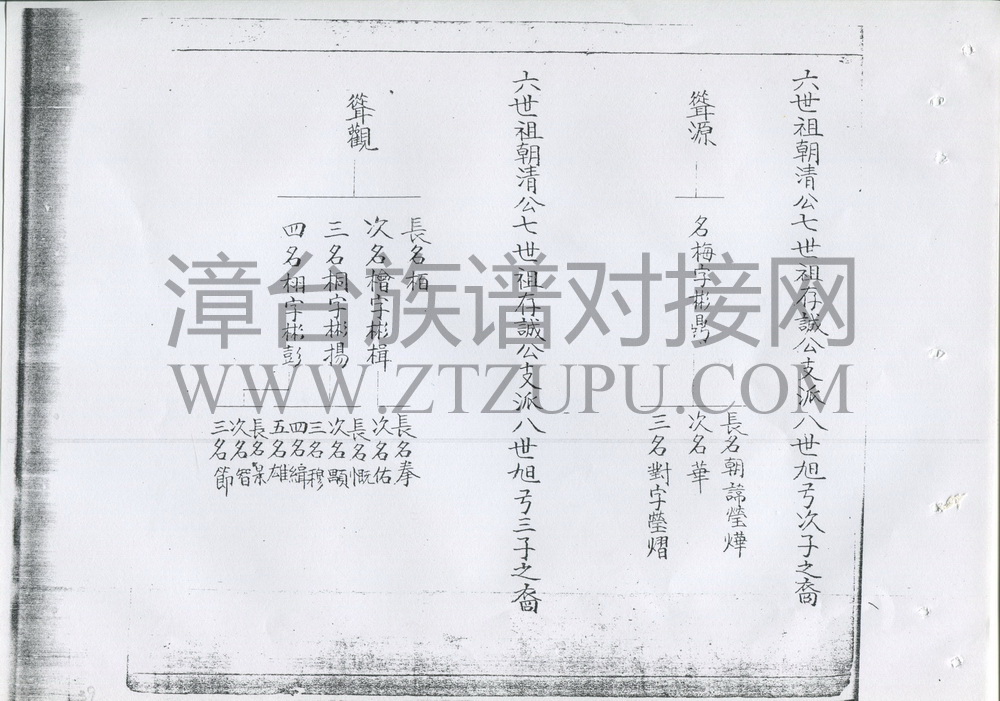 六世祖朝清公七世祖存誠公支派八世旭弓次子之裔
聳源
名梅字彬鼎
長名朝諦瑩燁
次名華
三名對字瑩熠
六世祖朝清公七世祖存誠公支派八世旭弓三子之裔
聳觀
長名栢
次名檜字彬楫
三名桐字彬揚
四名栩字彬彭
長名拳
次名佑
長名慨
次名顯
三名穆
四名緝
五名雄
長名
次名智
三名節
漳台族谱对接网
WWW.ZTZUPU.COM